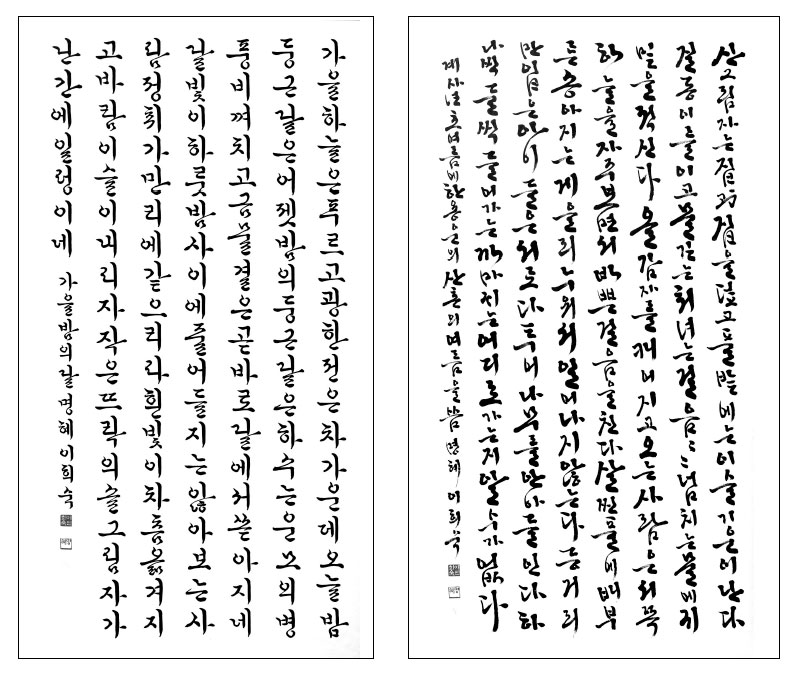 가을하늘은푸르고광한전은차가운데오늘밤
둥근달은어젯밤의둥근달은하수는운모의병
풍비껴치고금물결은곧바로달에서쏟아지네
달빛이하룻밤사이에줄어들지는않아보는사
람정취가만리에같으리라흰빛이차츰옮겨지
고바람이슬이뿌리자작은뜨락의솔그림자가
난간에일렁이네 가을밤의달 명혜 이희숙
산그림자는집과집을덮고풀밭에는이슬기운이난다
질동이를이고물긷는처녀는걸음걸음넘치는물에귀
밑을적신다올감자를캐어지고오는사람은서쪽
하늘을자주보면서바쁜걸음을친다살찐풀에배부
른송아지는게을리누워서일어나지않는다등거리
만입은아이들은서로다투어나무를안아들인다하
나씩둘씩돌아가는까마귀는어디로가는지알수가없다
계사년초여름에한용운의산촌의여름을밤 명혜 이희숙